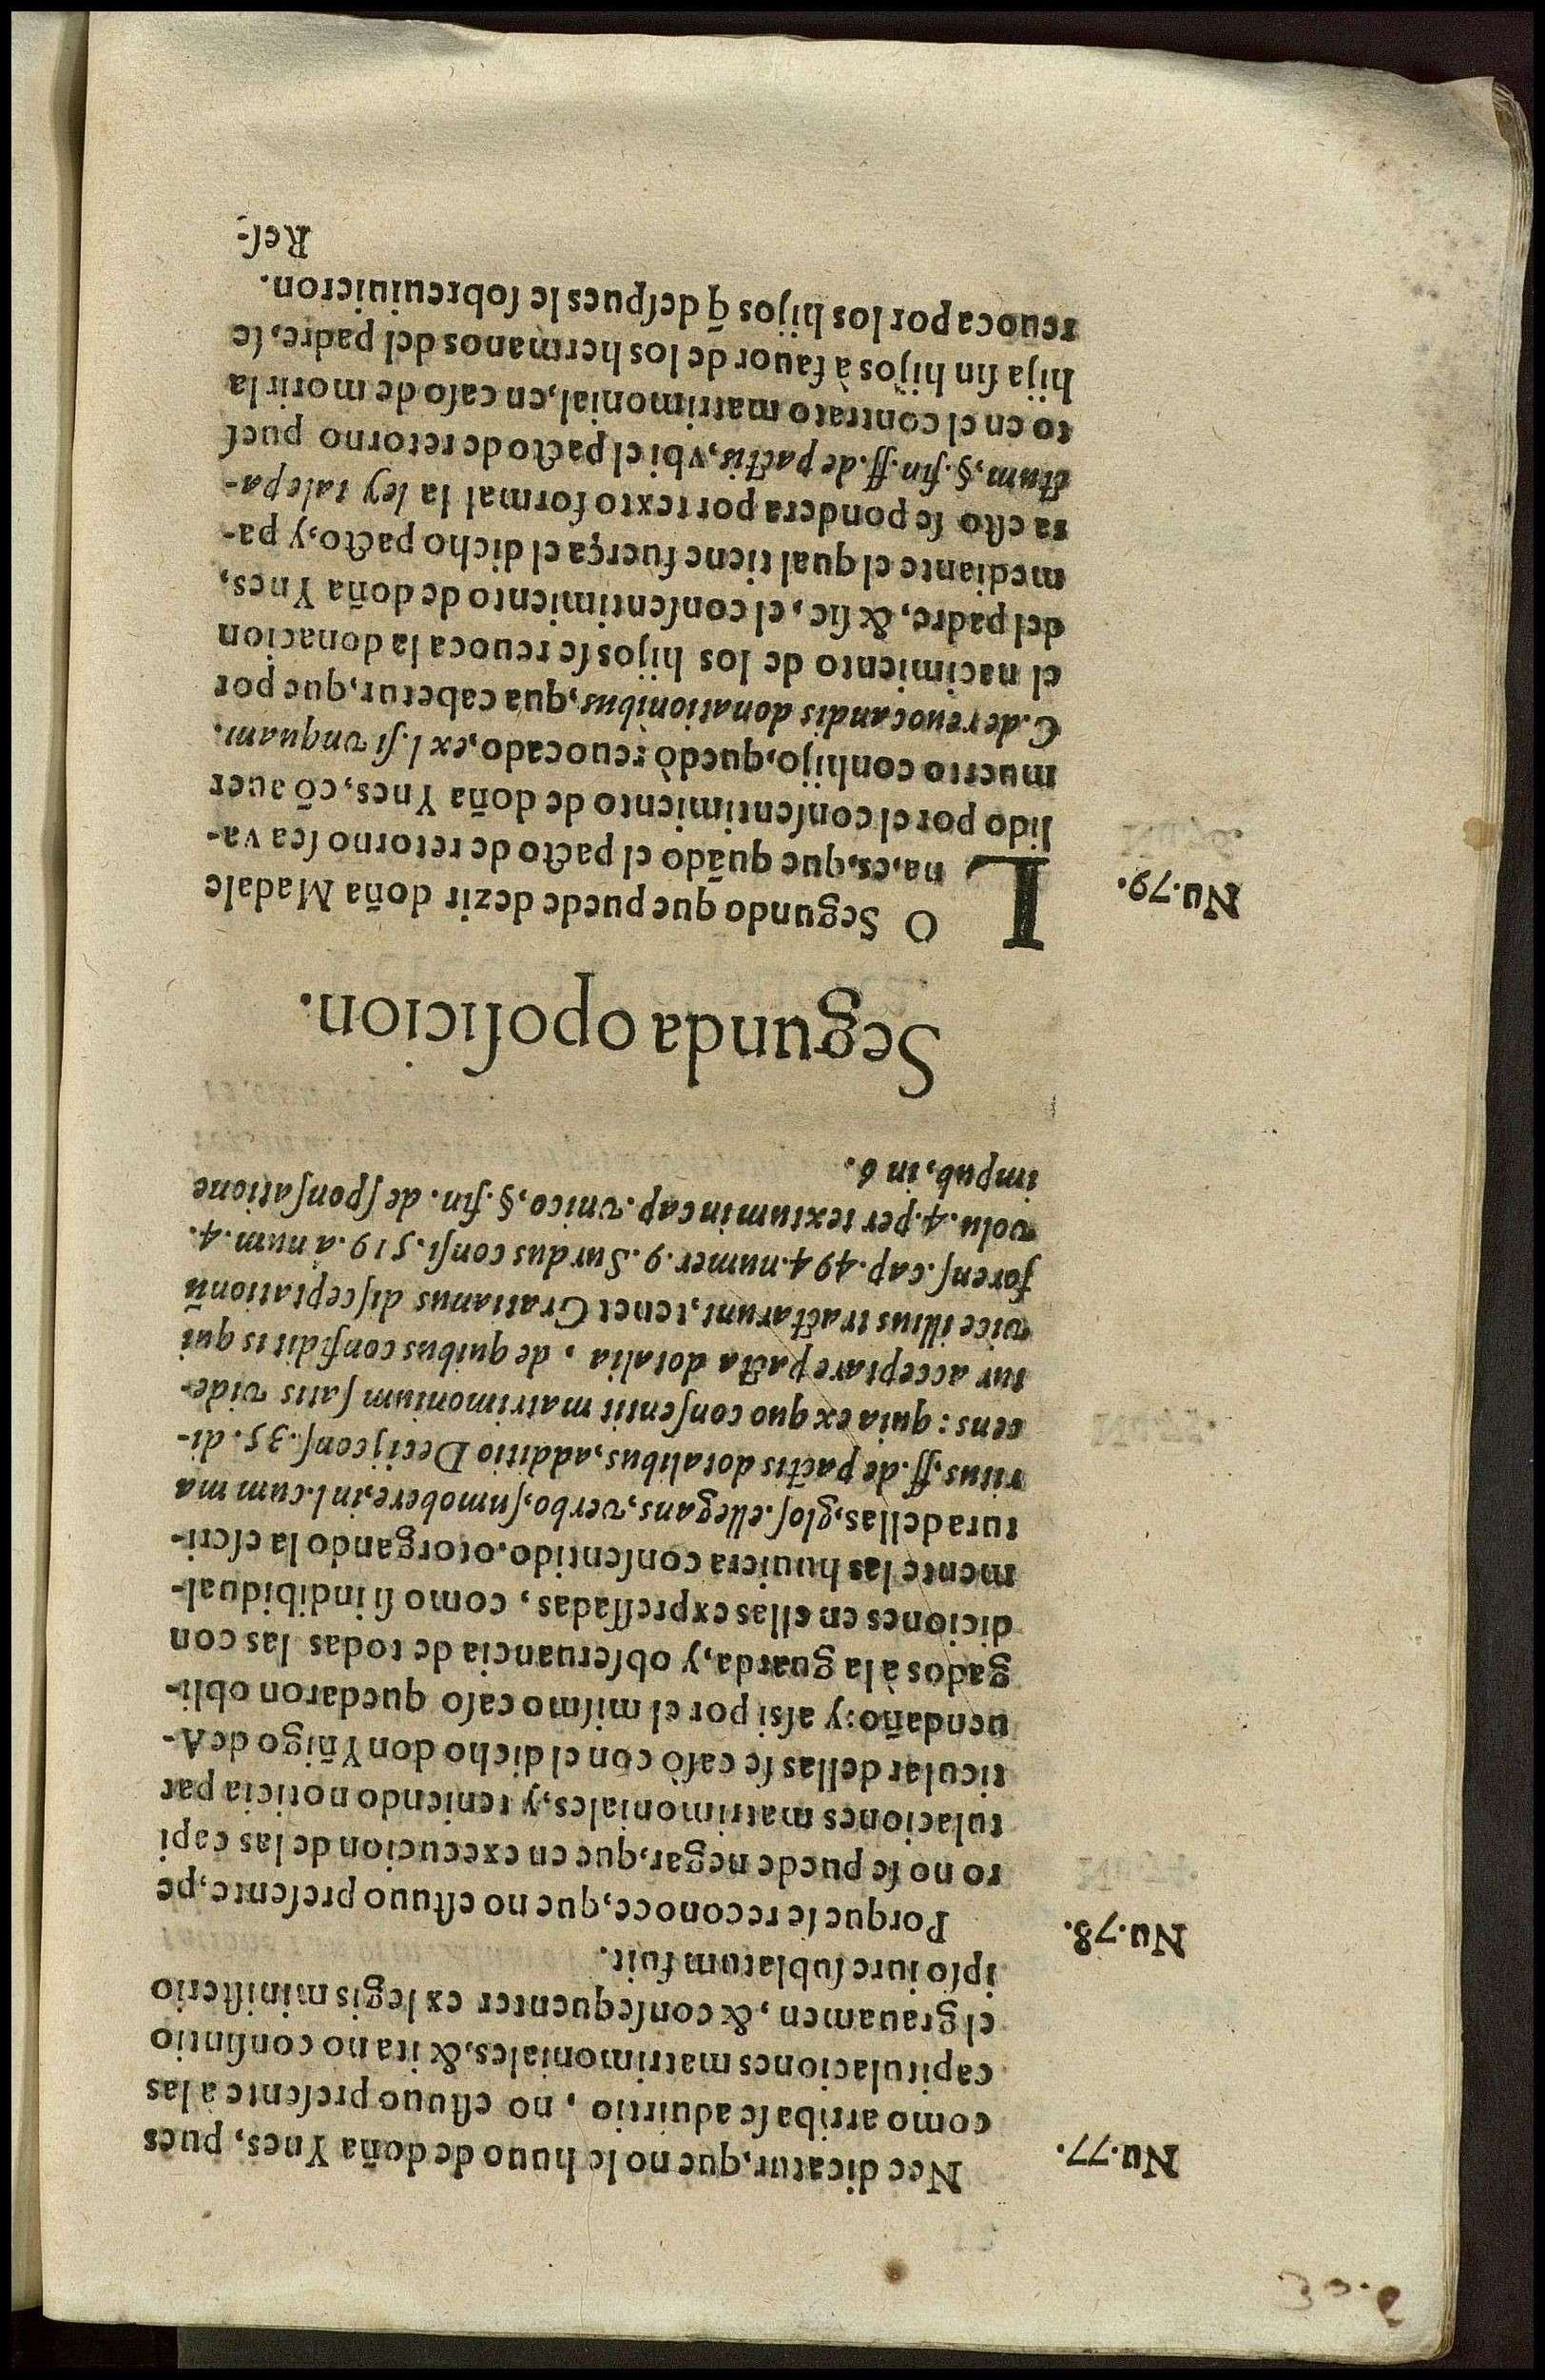 Nu.77.
Nec dicatur, que no le huuo de doña Ynes, pues
como arriba se aduirtio, no estuuo presente à las
capitulaciones matrimoniales, & ita no consintio
el grauamen, & consequenter ex legis ministerio
ipso iure sublatum fuit.
Nu.78.
Porque se reconoce, que no estuuo presente, pe
ro no se puede negar, que en execucion de las capi
tulaciones matrimoniales, y teniendo noticia par
ticular dellas se casò con el dicho don Yñigo de A-
uendaño: y assi por el mismo caso quedaron obli-
gados à la guarda, y obseruancia de todas las con
diciones en ellas expressadas, como si indibidual-
mente las huuiera consentido. otorgando la escri-
tura dellas, glos. ellegans, verbo, sumobere, in l. cum ma
ritus, ff. de pactis dotalibus, additio Decij cons. 35. di-
cens: quia ex quo consensit matrimonium satis vide-
tur acceptare pacta dotalia, de quibus confiditis qui
vice illius tractarunt, tenet Gratianus disceptationū
forens. cap. 494. numer. 9. Surdus consi. 519. à num. 4.
volu. 4. per textum in cap. vnico, §. fin. de sponsatione
impub, in 6.
Segunda oposicion.
Nu.79.
LO Segundo que puede dezir doña Madale
na, es, que quādo el pacto de retorno sea va-
lido por el consentimiento de doña Ynes, cō auer
muerto con hijo, quedò reuocado, ex l. si vnquam.
C. de reuocandis donationibus, qua cabetur, que por
el nacimiento de los hijos se reuoca la donacion
del padre, & sic, el consentimiento de doña Ynes,
mediante el qual tiene fuerça el dicho pacto, y pa-
ra esto se pondera por texto formal la ley tale pa-
ctum, §. fin. ff. de pactis, vbi el pacto de retorno pues
to en el contrato matrimonial, en caso de morir la
hija sin hijos à fauor de los hermanos del padre, se
reuoca por los hijos q̄ despues le sobreuiuieron.
Res-